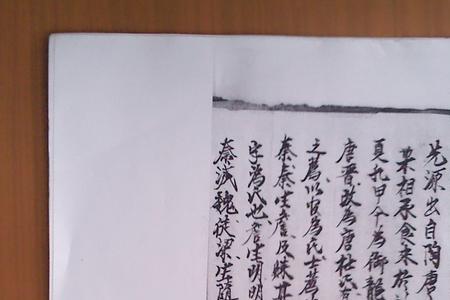 先源出自陶唐
業相承食采於
夏孔甲今為御龍
唐晉改為唐杜氏
之為以官為氏士蒍
秦秦生及妹其
字為氏也生明明
秦滅魏徙梁生隨